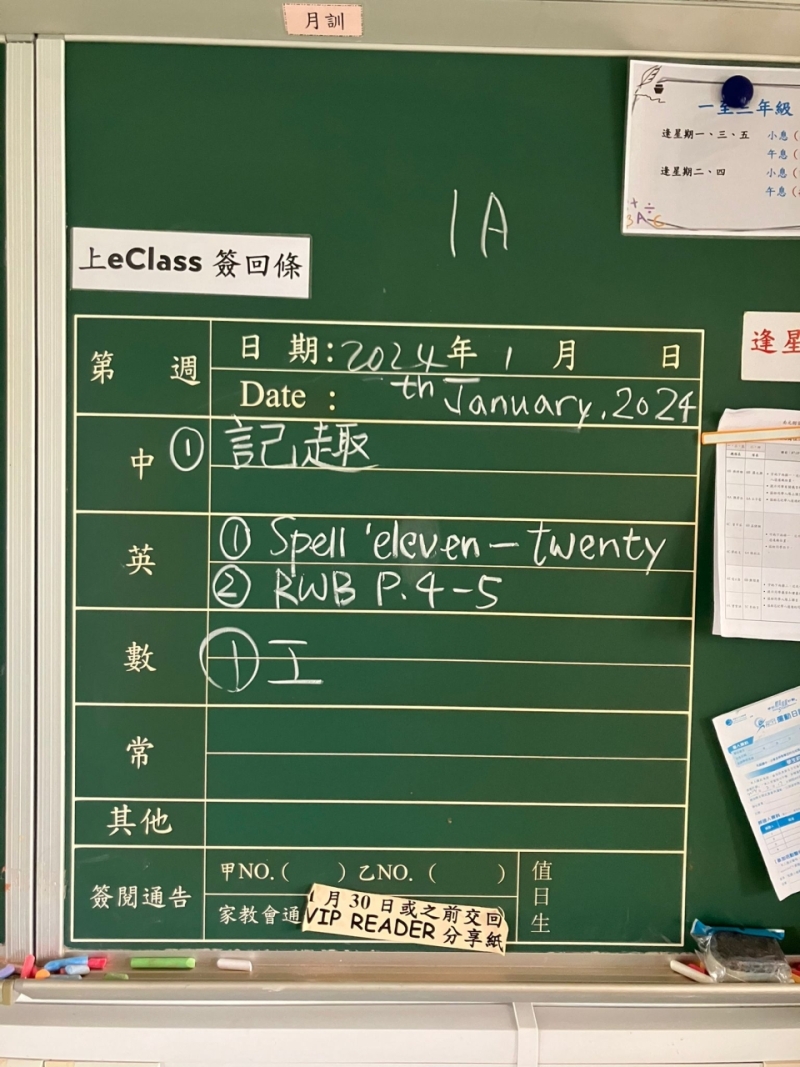 月訓
一至三年級
逢星期一、三、五 小息（
午息（
逢星期二、四 小息（
午息（
1A
上eClass 簽回條
逢星
第 週
日 期：2024年 1 月 日
Date : th January, 2024
中 ① 記趣
英 ① Spell 'eleven – twenty
② RWB P.4-5
數 ① 工
常
其他
簽閱通告
甲NO.( ) 乙NO. ( )
家教會通
值日生
1月30日或之前交回
VIP READER 分享紙